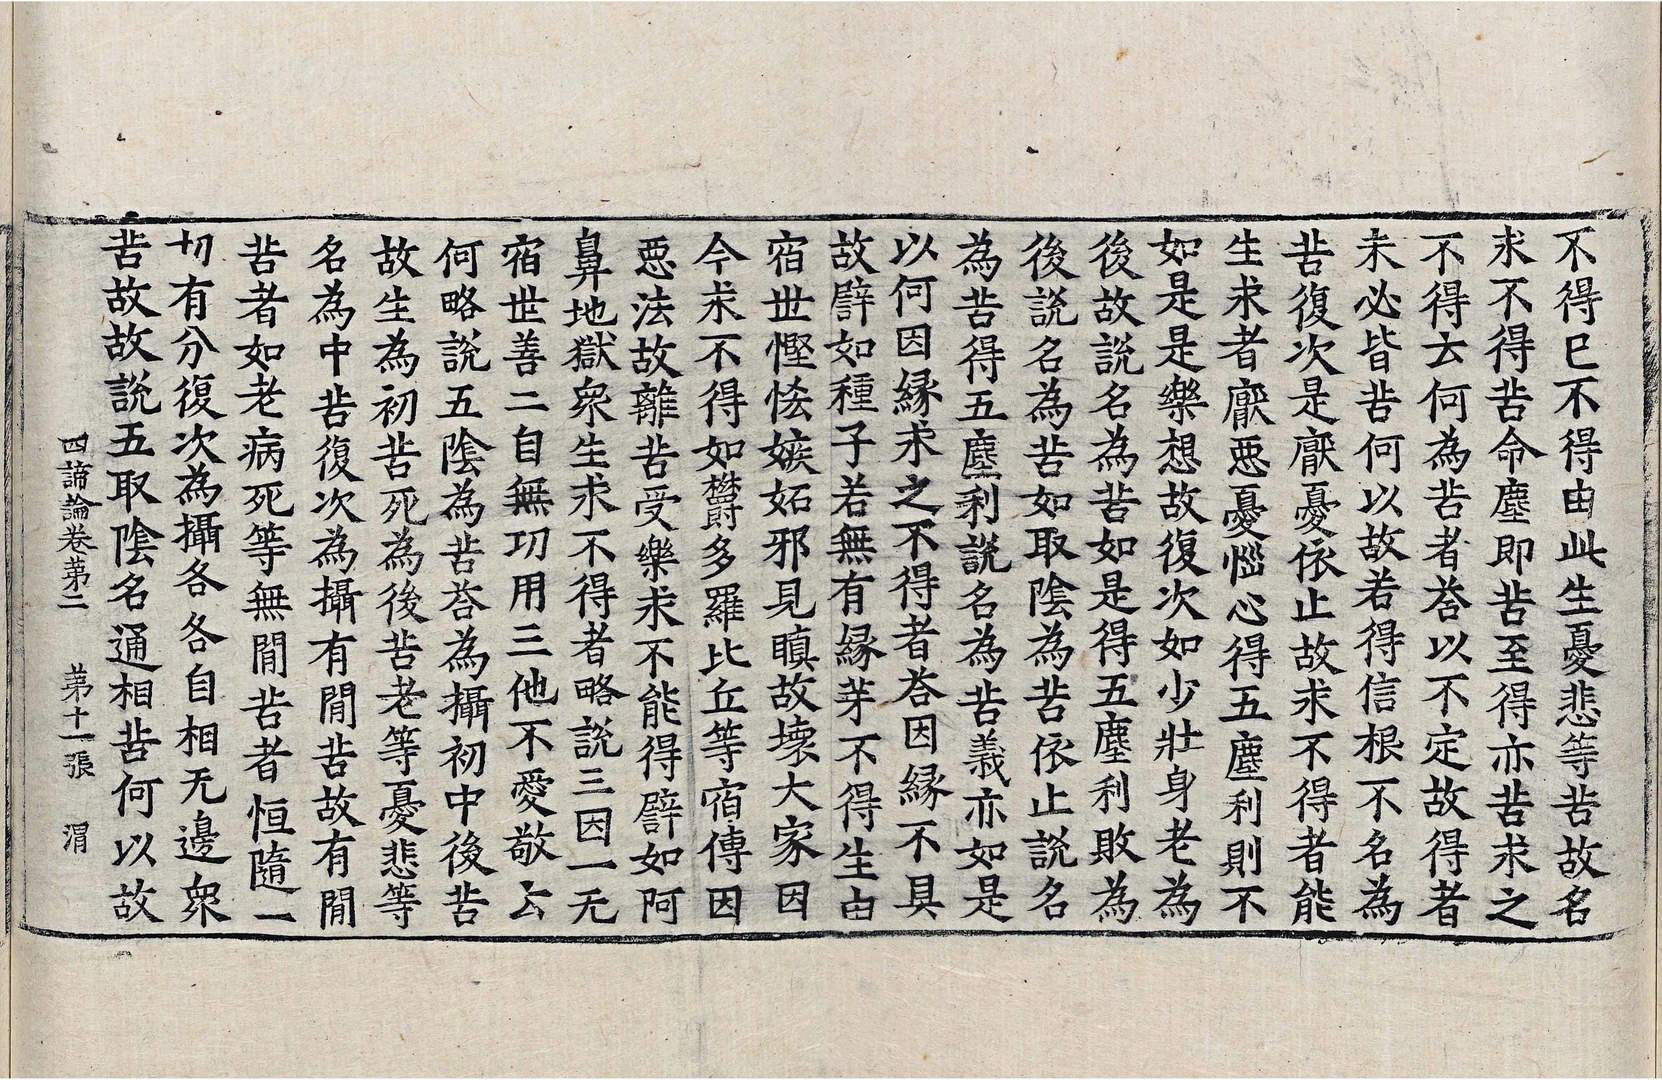 不得已不得由此生憂悲等苦故名
求不得苦命塵即苦至得亦苦求之
不得云何為苦者荅以不定故得者
未必皆苦何以故若得信根不名為
苦復次是厭憂依止故求不得者能
生求者厭惡憂惱心得五塵利則不
如是是樂想故復次如少壯身老為
後故説名為苦如是得五塵利敗為
後説名為苦如取陰為苦依止説名
為苦得五塵利説名為苦義亦如是
以何因縁求之不得者荅因縁不具
故譬如種子若無有縁芽不得生由
宿世慳悋嫉妬邪見瞋故壞大家因
今求不得如欝多羅比丘等宿傳因
惡法故離苦受樂求不能得譬如阿
鼻地獄衆生求不得者略説三因一无
宿世善二自無功用三他不愛敬云
何略説五陰為苦荅為攝初中後苦
故生為初苦死為後苦老等憂悲等
名為中苦復次為攝有閒苦故有閒
苦者如老病死等無閒苦者恒隨一
切有分復次為攝各各自相无邊衆
苦故故説五取陰名通相苦何以故
四諦論卷第二 第十一張 渭